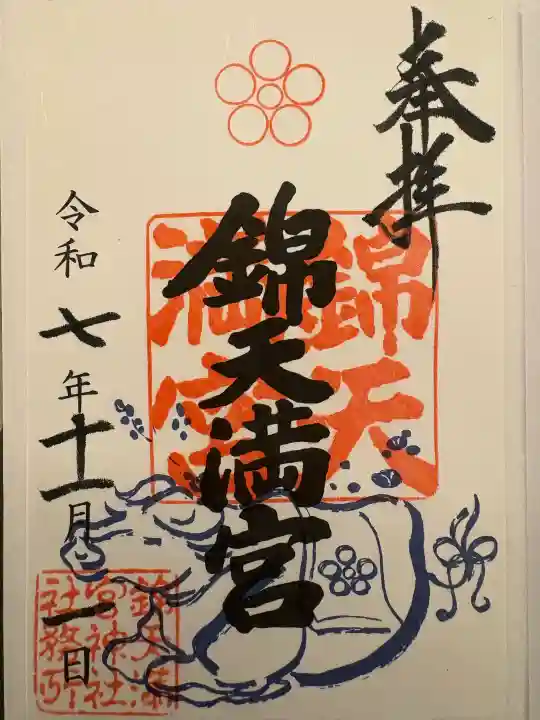 奉拝
錦天満宮
錦天
満宮
令和七年十一月一日
錦天満
宮神社
社務所